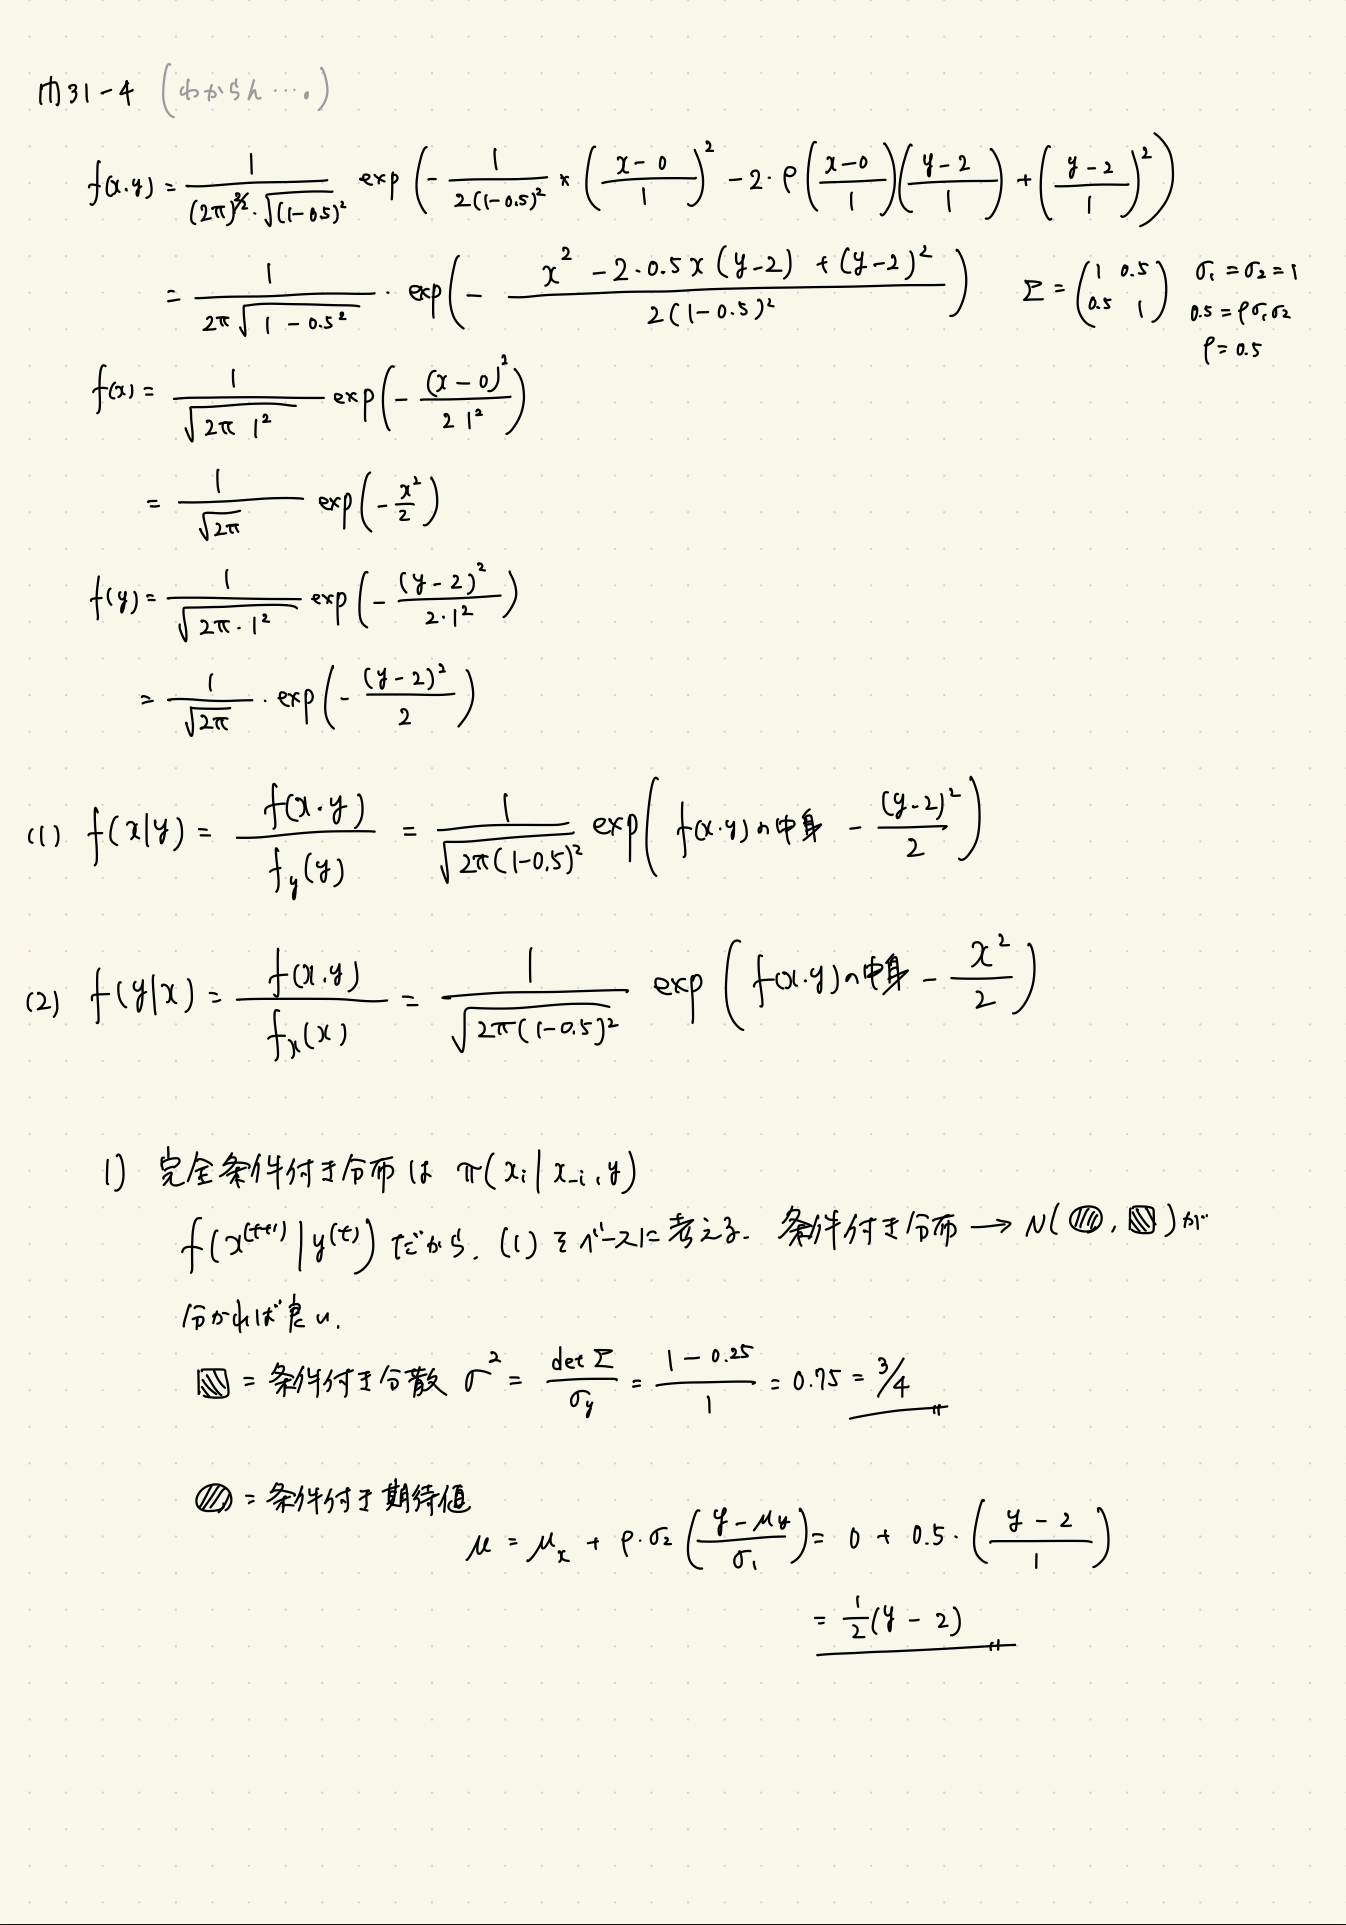 問31-4 (わからん…。)
f(x.y) = 1/((2π)^{2/2}・√(1-0.5)²) exp(-1/(2(1-0.5)²) * ((x-0)/1)² -2・ρ((x-0)/1)((y-2)/1) + ((y-2)/1)²)
= 1/(2π√(1-0.5²))・exp(-(x² -2・0.5x(y-2) + (y-2)²)/(2(1-0.5)²)) Σ = (1 0.5 / 0.5 1) σ₁ = σ₂ = 1
0.5 = ρσ₁σ₂
ρ = 0.5
f(x) = 1/√(2π 1²) exp(-(x-0)²/(2 1²))
= 1/√2π exp(-x²/2)
f(y) = 1/√(2π・1²) exp(-(y-2)²/(2・1²))
= 1/√2π・exp(-(y-2)²/2)
(1) f(x|y) = f(x.y)/f_y(y) = 1/√(2π(1-0.5)²) exp(f(x.y)の中身 - (y-2)²/2)
(2) f(y|x) = f(x.y)/f_x(x) = 1/√(2π(1-0.5)²) exp(f(x.y)の中身 - x²/2)
1) 完全条件付き分布は π(x_i|x_{-i},y)
f(x^{(t+1)}|y^{(t)})だから、(1)をベースに考える. 条件付き分布 → N(◍,▧)が
分かれば良い.
▧ = 条件付き分散 σ² = detΣ/σ_y = (1-0.25)/1 = 0.75 = 3/4
◍ = 条件付き期待値
μ = μ_x + ρ・σ₂((y-μ_y)/σ₁) = 0 + 0.5・((y-2)/1)
= 1/2(y-2)